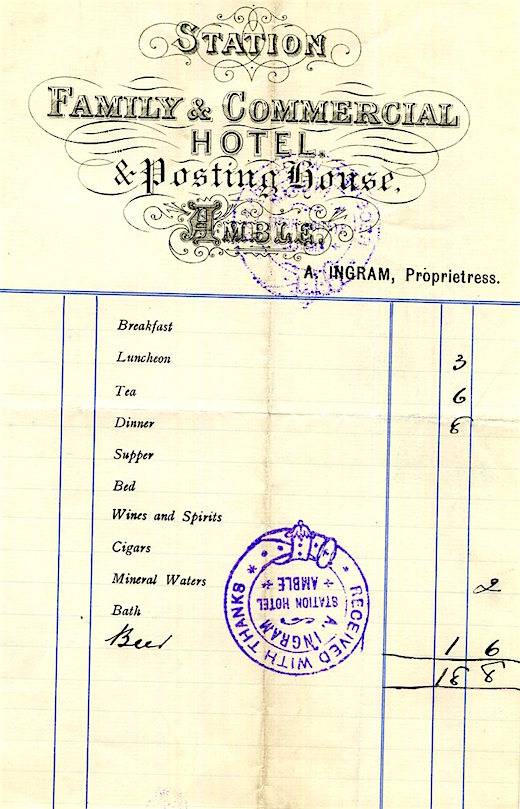 STATION
FAMILY & COMMERCIAL
HOTEL.
& Posting House,
AMBLE.
A. INGRAM, Proprietress.
Breakfast
Luncheon 3
Tea 6
Dinner 8
Supper
Bed
Wines and Spirits
Cigars
Mineral Waters 2
Bath
Beer 1 6
18 8
RECEIVED WITH THANKS
A. INGRAM
STATION HOTEL
AMBLE